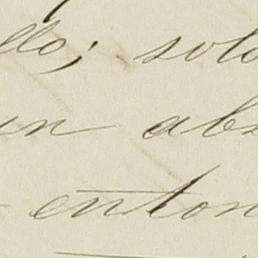 do; solo
un abs
enton